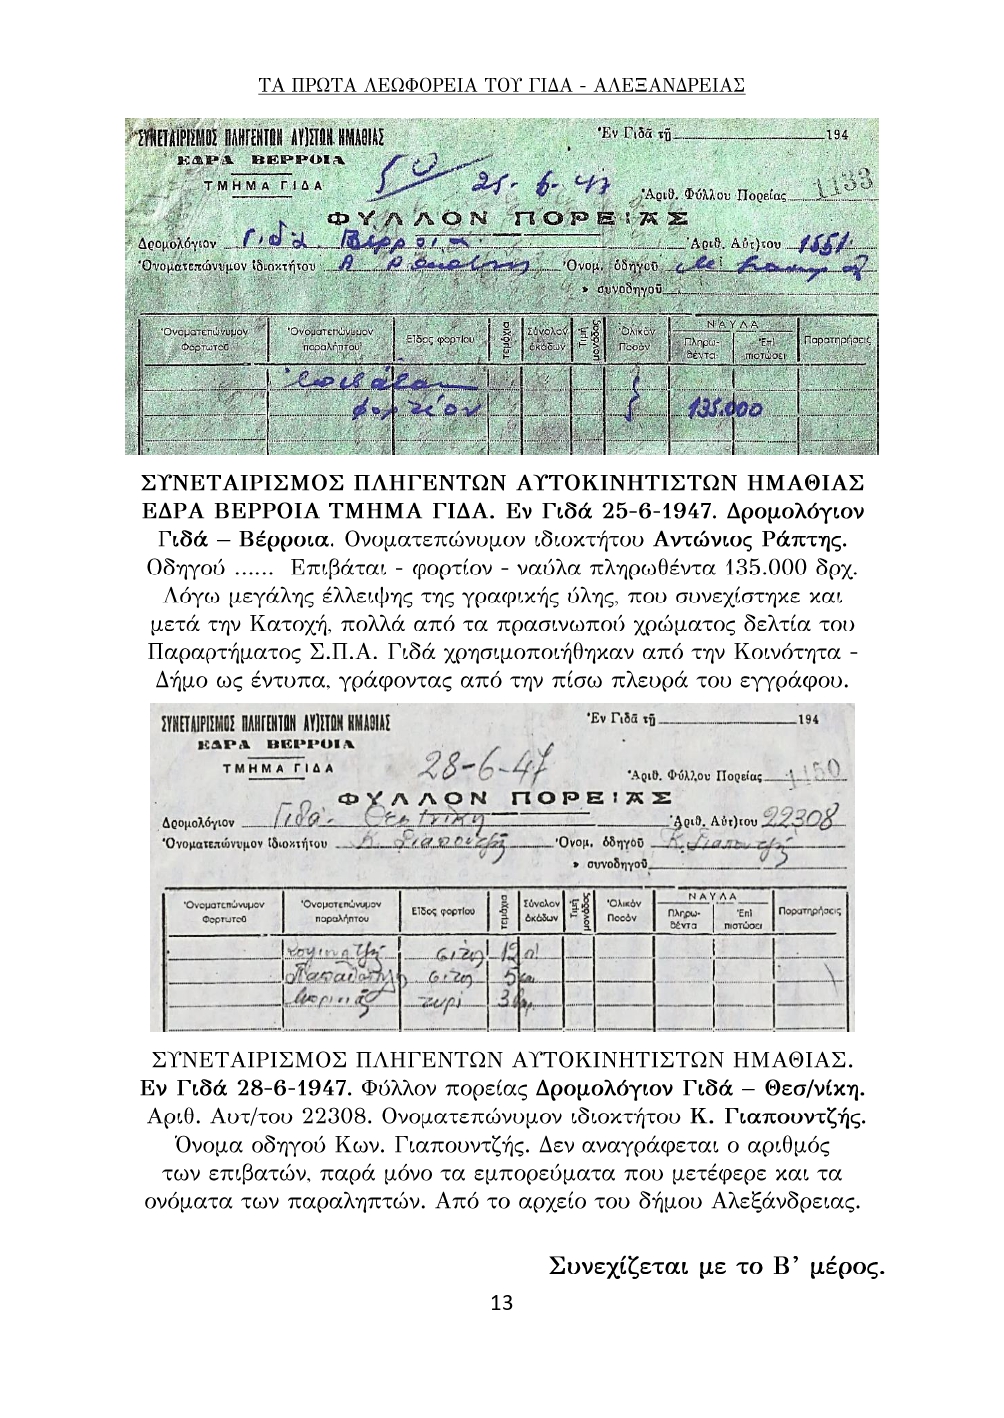 ΤΑ ΠΡΩΤΑ ΛΕΩΦΟΡΕΙΑ ΤΟΥ ΓΙΔΑ - ΑΛΕΞΑΝΔΡΕΙΑΣ
ΣΥΝΕΤΑΙΡΙΣΜΟΣ ΠΛΗΓΕΝΤΩΝ ΑΥ)ΣΤΩΝ ΗΜΑΘΙΑΣ
Ἐν Γιδᾶ τῇ 194
ΕΔΡΑ ΒΕΡΡΟΙΑ
ΤΜΗΜΑ ΓΙΔΑ
25-6-47
Ἀριθ. Φύλλου Πορείας 1133
ΦΥΛΛΟΝ ΠΟΡΕΙΑΣ
Δρομολόγιον Γιδά Βέρροια Ἀριθ. Αὐτ)του 1551
Ὀνοματεπώνυμον ἰδιοκτήτου Α Ράπτης Ὀνομ. ὁδηγοῦ
» συνοδηγοῦ
Ὀνοματεπώνυμον Φορτωτοῦ Ὀνοματεπώνυμον παραλήπτου Εἶδος φορτίου τεμάχια Σύνολον ὀκάδων Τιμὴ μονάδος Ὁλικὸν Ποσὸν ΝΑΥΛΑ Πληρωθέντα Ἐπὶ πιστώσει Παρατηρήσεις
ἐπιβάται
φορτίον 135.000
ΣΥΝΕΤΑΙΡΙΣΜΟΣ ΠΛΗΓΕΝΤΩΝ ΑΥΤΟΚΙΝΗΤΙΣΤΩΝ ΗΜΑΘΙΑΣ
ΕΔΡΑ ΒΕΡΡΟΙΑ ΤΜΗΜΑ ΓΙΔΑ. Εν Γιδά 25-6-1947. Δρομολόγιον
Γιδά – Βέρροια. Ονοματεπώνυμον ιδιοκτήτου Αντώνιος Ράπτης.
Οδηγού ...... Επιβάται - φορτίον - ναύλα πληρωθέντα 135.000 δρχ.
Λόγω μεγάλης έλλειψης της γραφικής ύλης, που συνεχίστηκε και
μετά την Κατοχή, πολλά από τα πρασινωπού χρώματος δελτία του
Παραρτήματος Σ.Π.Α. Γιδά χρησιμοποιήθηκαν από την Κοινότητα -
Δήμο ως έντυπα, γράφοντας από την πίσω πλευρά του εγγράφου.
ΣΥΝΕΤΑΙΡΙΣΜΟΣ ΠΛΗΓΕΝΤΩΝ ΑΥ)ΣΤΩΝ ΗΜΑΘΙΑΣ
Ἐν Γιδᾶ τῇ 194
ΕΔΡΑ ΒΕΡΡΟΙΑ
ΤΜΗΜΑ ΓΙΔΑ
28-6-47
Ἀριθ. Φύλλου Πορείας 1150
ΦΥΛΛΟΝ ΠΟΡΕΙΑΣ
Δρομολόγιον Γιδά - Θεσ/νίκη Ἀριθ. Αὐτ)του 22308
Ὀνοματεπώνυμον ἰδιοκτήτου Κ. Γιαπουτζῆς Ὀνομ. ὁδηγοῦ Κ. Γιαπουτζῆς
» συνοδηγοῦ
Ὀνοματεπώνυμον Φορτωτοῦ Ὀνοματεπώνυμον παραλήπτου Εἶδος φορτίου τεμάχια Σύνολον ὀκάδων Τιμὴ μονάδος Ὁλικὸν Ποσὸν ΝΑΥΛΑ Πληρωθέντα Ἐπὶ πιστώσει Παρατηρήσεις
σιτος 12
σιτος 5
τυρί 3
ΣΥΝΕΤΑΙΡΙΣΜΟΣ ΠΛΗΓΕΝΤΩΝ ΑΥΤΟΚΙΝΗΤΙΣΤΩΝ ΗΜΑΘΙΑΣ.
Εν Γιδά 28-6-1947. Φύλλον πορείας Δρομολόγιον Γιδά – Θεσ/νίκη.
Αριθ. Αυτ/του 22308. Ονοματεπώνυμον ιδιοκτήτου Κ. Γιαπουντζής.
Όνομα οδηγού Κων. Γιαπουντζής. Δεν αναγράφεται ο αριθμός
των επιβατών, παρά μόνο τα εμπορεύματα που μετέφερε και τα
ονόματα των παραληπτών. Από το αρχείο του δήμου Αλεξάνδρειας.
Συνεχίζεται με το Β’ μέρος.
13